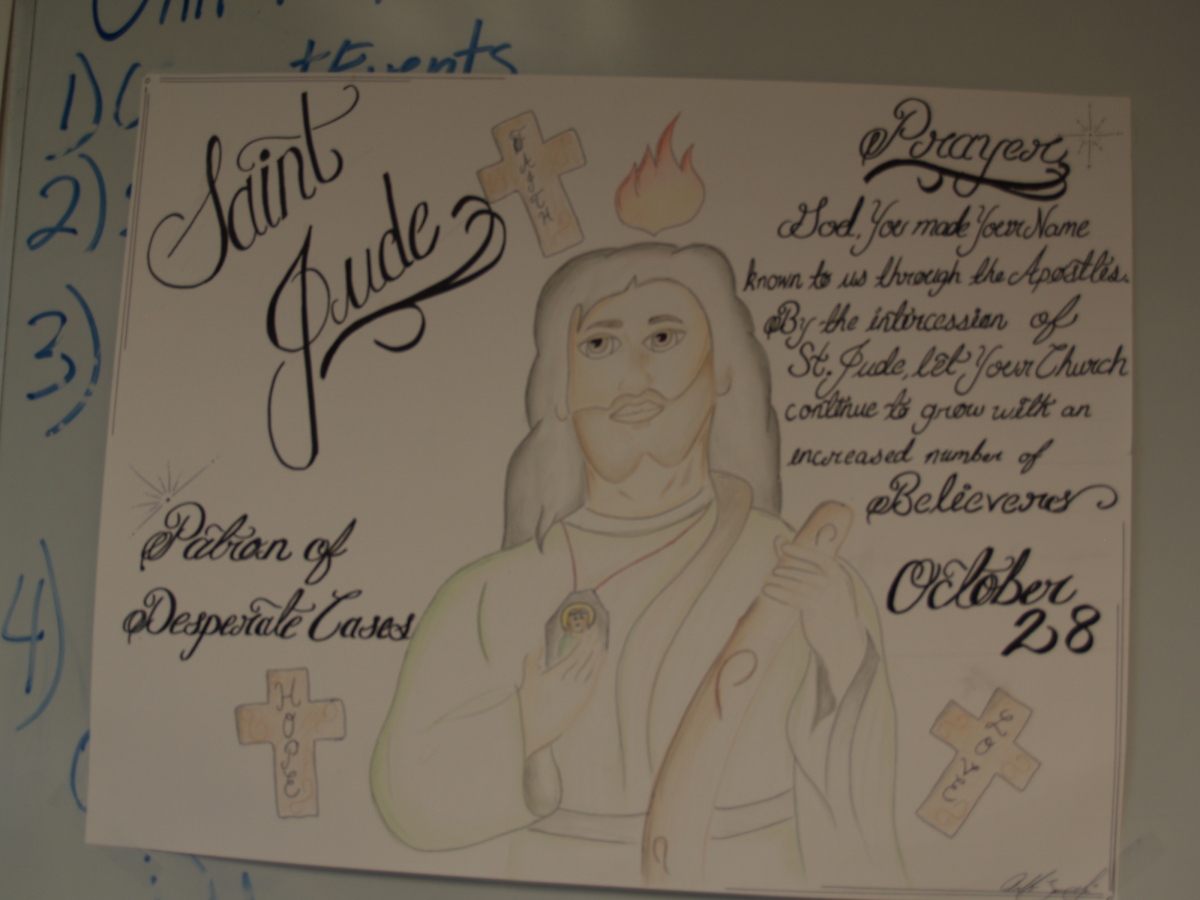 1)
ttEvents
2)
3)
4)
Saint
Jude
FAITH
Prayer
God, You made Your Name
known to us through the Apostles.
By the intircession of
St. Jude, let Your Church
continue to grow with an
increased number of
Believers
October
28
Patron of
Desperate Cases
HOPE
LOVE